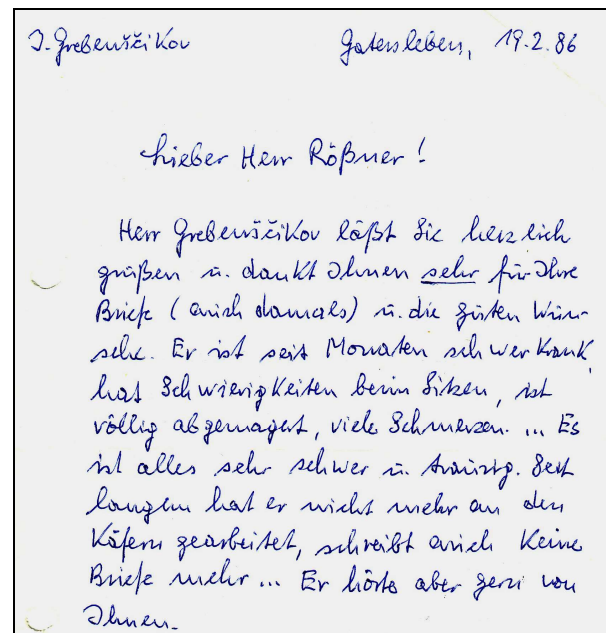 I. Grebenščikov Gatersleben, 19.2.86
Lieber Herr Rößner!
Herr Grebenščikov läßt Sie herzlich
grüßen u. dankt Ihnen sehr für Ihre
Briefe (auch damals) u. die guten Wün-
sche. Er ist seit Monaten schwer krank,
hat Schwierigkeiten beim Sitzen, ist
völlig abgemagert, viele Schmerzen. ... Es
ist alles sehr schwer u. traurig. Seit
langem hat er nicht mehr an den
Käfern gearbeitet, schreibt auch keine
Briefe mehr ... Er hörte aber gern von
Ihnen.